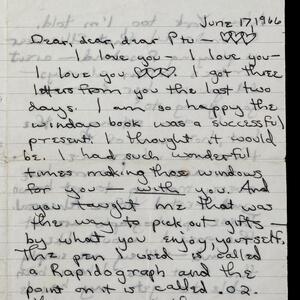 June 17, 1966
Dear, dear, dear Ptu - ♡♡♡
I love you - I love you -
I love you ♡♡♡. I got three
letters from you the last two
days. I am so happy the
window book was a successful
present. I thought it would
be. I had such wonderful
times making those windows
for you - with you. And
you taught me that was
the way to pick out gifts -
by what you enjoy yourself.
The pen I used is called
a Rapidograph and the
point on it is called .02.